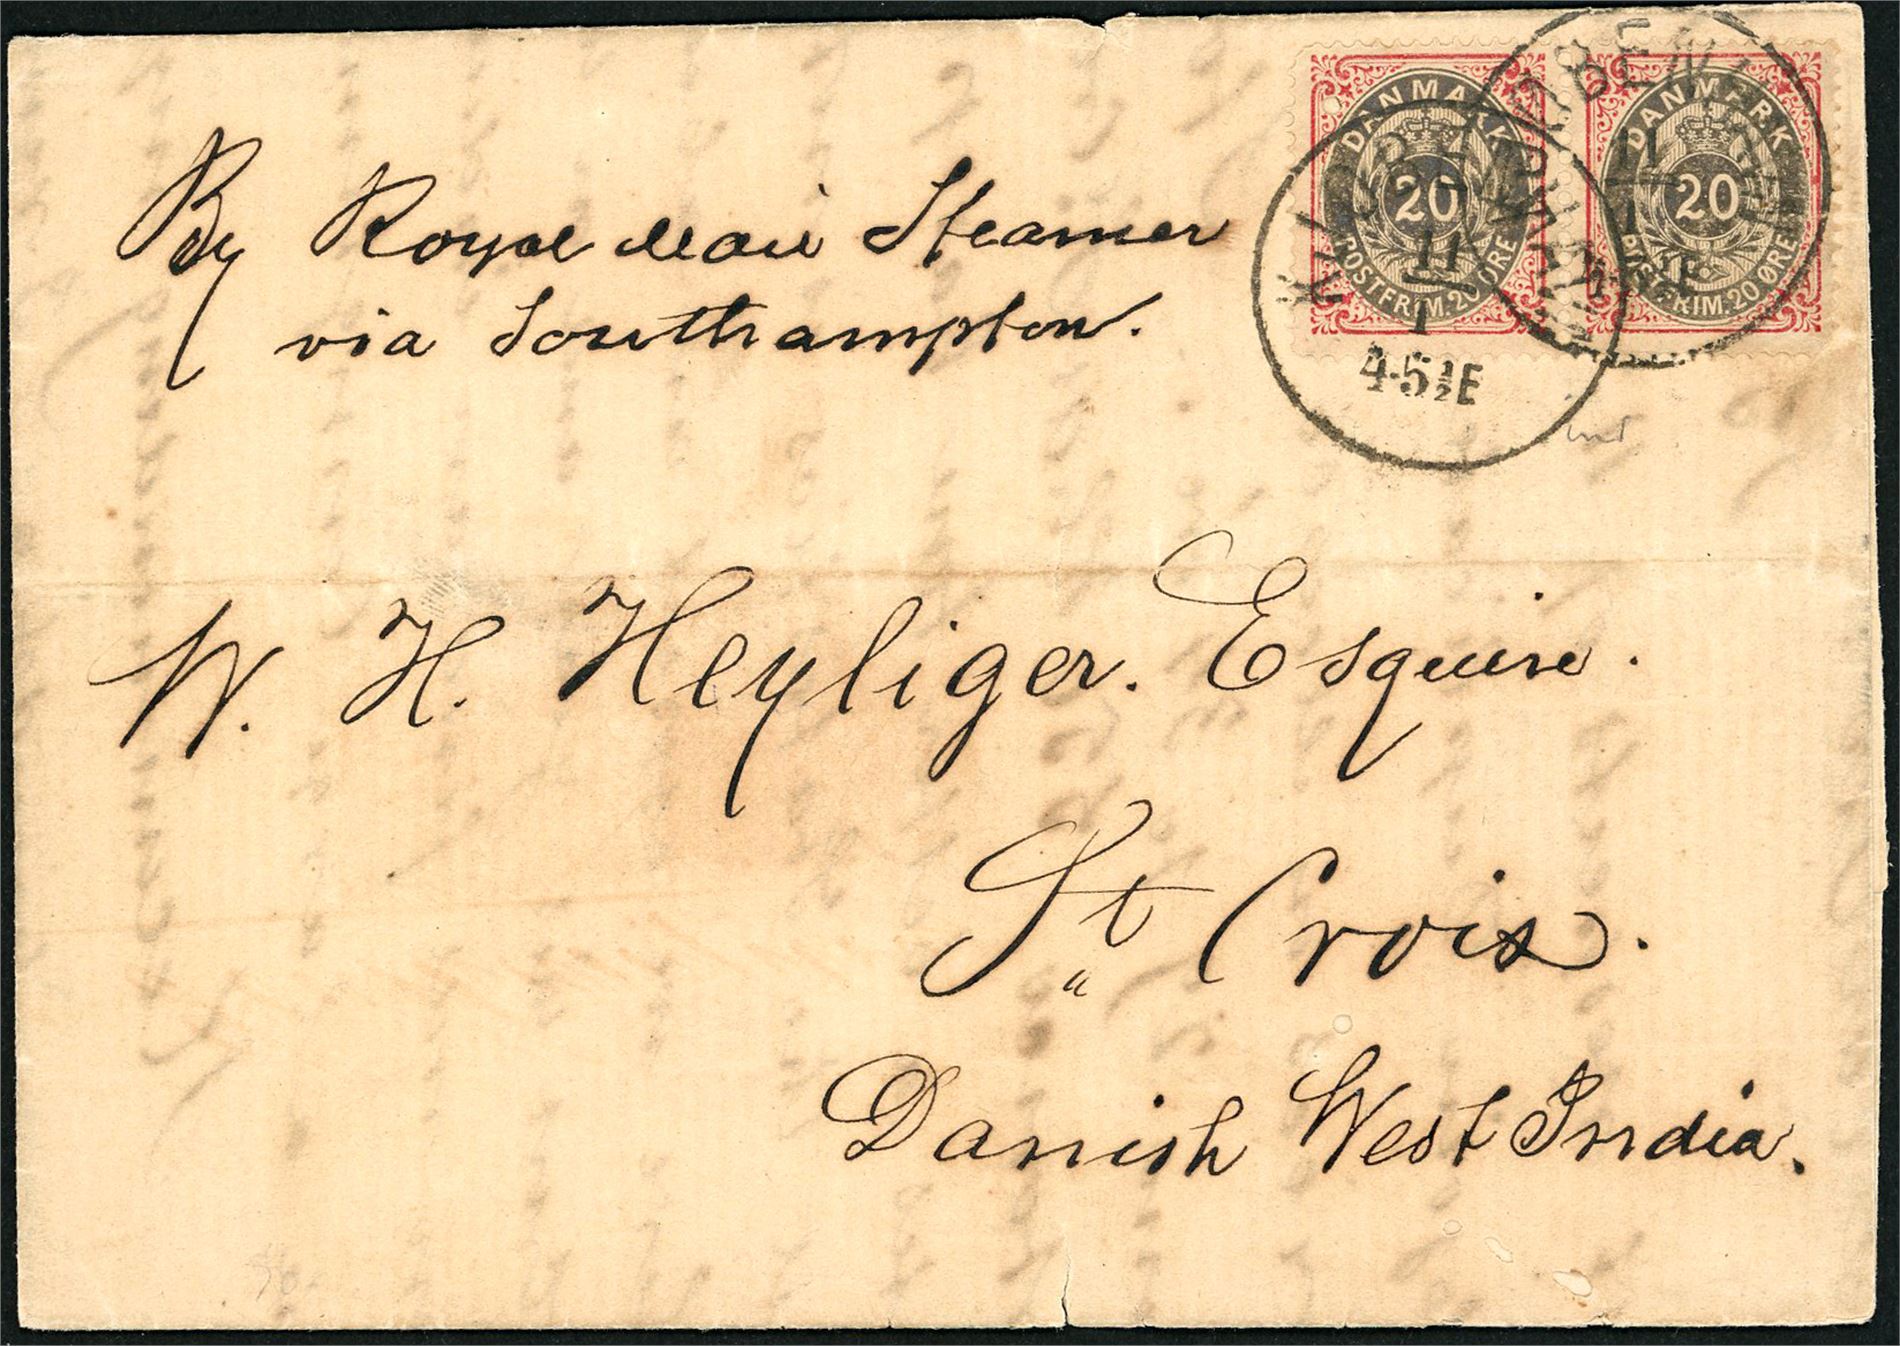 By Royal Mail Steamer
via Southampton.
DANMARK
20
POSTFRIM. 20 ØRE
DANMARK
20
POSTFRIM. 20 ØRE
KJØBENHAVN
11
1
4-5½E
11
1
W. H. Heyliger. Esquire.
St Croix.
Danish West India.